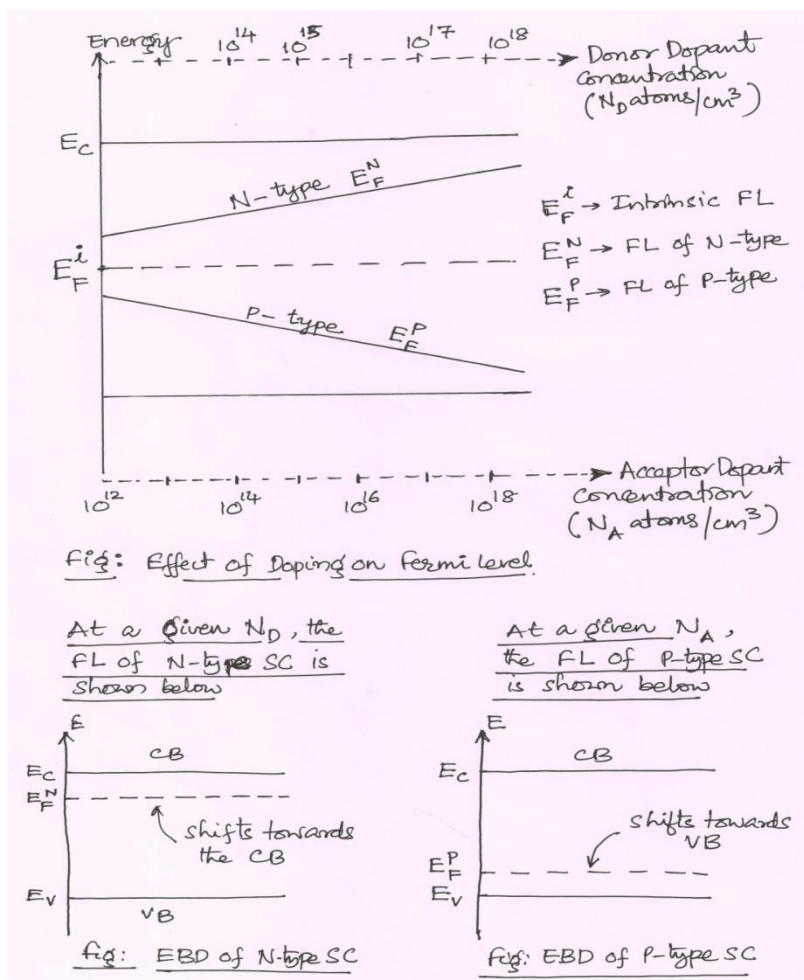 Energy 10^14 10^15 10^17 10^18
Donor Dopant
Concentration
(N_D atoms/cm^3)
E_C
N-type E_F^N
E_F^i → Intrinsic FL
E_F^i
E_F^N → FL of N-type
E_F^P → FL of P-type
P-type E_F^P
Acceptor Dopant
Concentration
(N_A atoms/cm^3)
10^12 10^14 10^16 10^18
Fig: Effect of Doping on Fermi Level.
At a given N_D, the
FL of N-type SC is
shown below
E
CB
E_C
E_F^N
shifts towards
the CB
E_V
VB
fig: EBD of N-type SC
At a given N_A,
the FL of P-type SC
is shown below
E
CB
E_C
shifts towards
VB
E_F^P
E_V
Fig: EBD of P-type SC